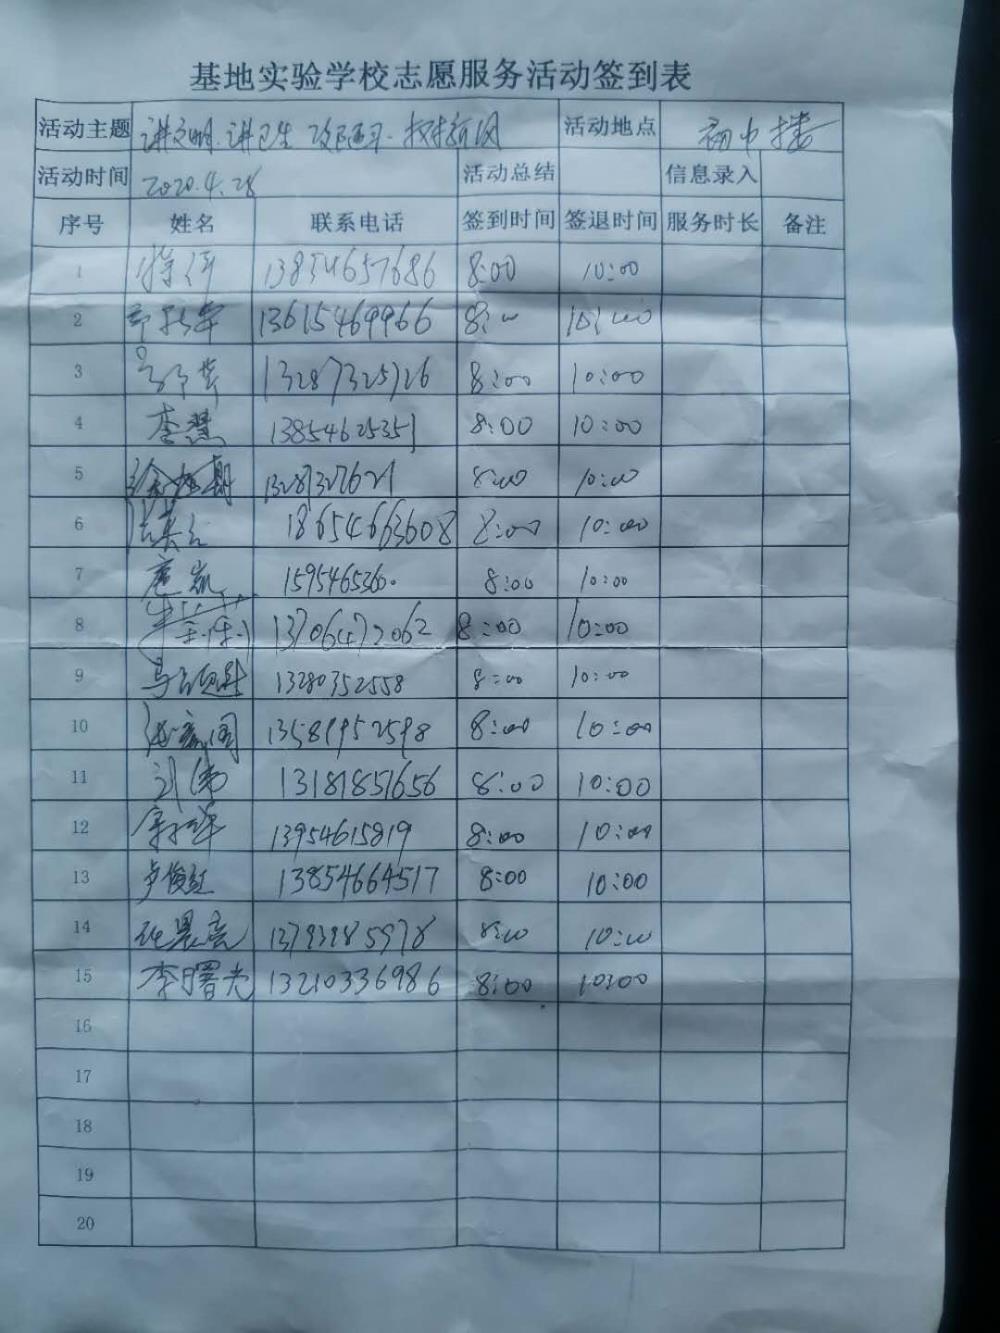 基地实验学校志愿服务活动签到表
活动主题 讲文明.讲卫生.改陋习.树新风 活动地点 初中楼
活动时间 2020.4.28 活动总结 信息录入
序号 姓名 联系电话 签到时间 签退时间 服务时长 备注
1 13854657686 8:00 10:00
2 13615469966 8:00 10:00
3 13287325726 8:00 10:00
4 李慧 13854625351 8:00 10:00
5 8:00 10:00
6 18654663608 8:00 10:00
7 唐岚 15954653600 8:00 10:00
8 13706472062 8:00 10:00
9 13280352558 8:00 10:00
10 13589952598 8:00 10:00
11 刘伟 13181851656 8:00 10:00
12 13954615819 8:00 10:00
13 卢俊红 13854664517 8:00 10:00
14 张景亮 13793985978 8:00 10:00
15 李曙光 13210336986 8:00 10:00
16
17
18
19
20